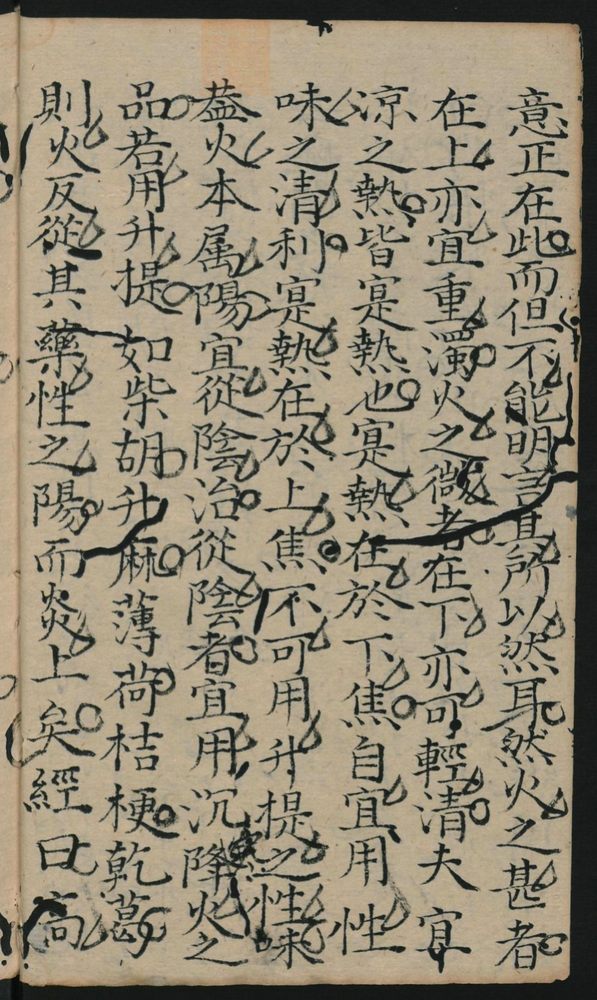 意正在此而但不能明言其所以然耳然火之甚者
在上亦宜重濁火之微者在下亦可輕清夫宜
凉之熱皆寔熱也寔熱在於下焦自宜用性
味之清利寔熱在於上焦不可用升提之性味
蓋火本属陽宜從陰治從陰者宜用沉降火之
品若用升提如柴胡升麻薄荷桔梗乾葛
則火反從其藥性之陽而炎上矣經曰高